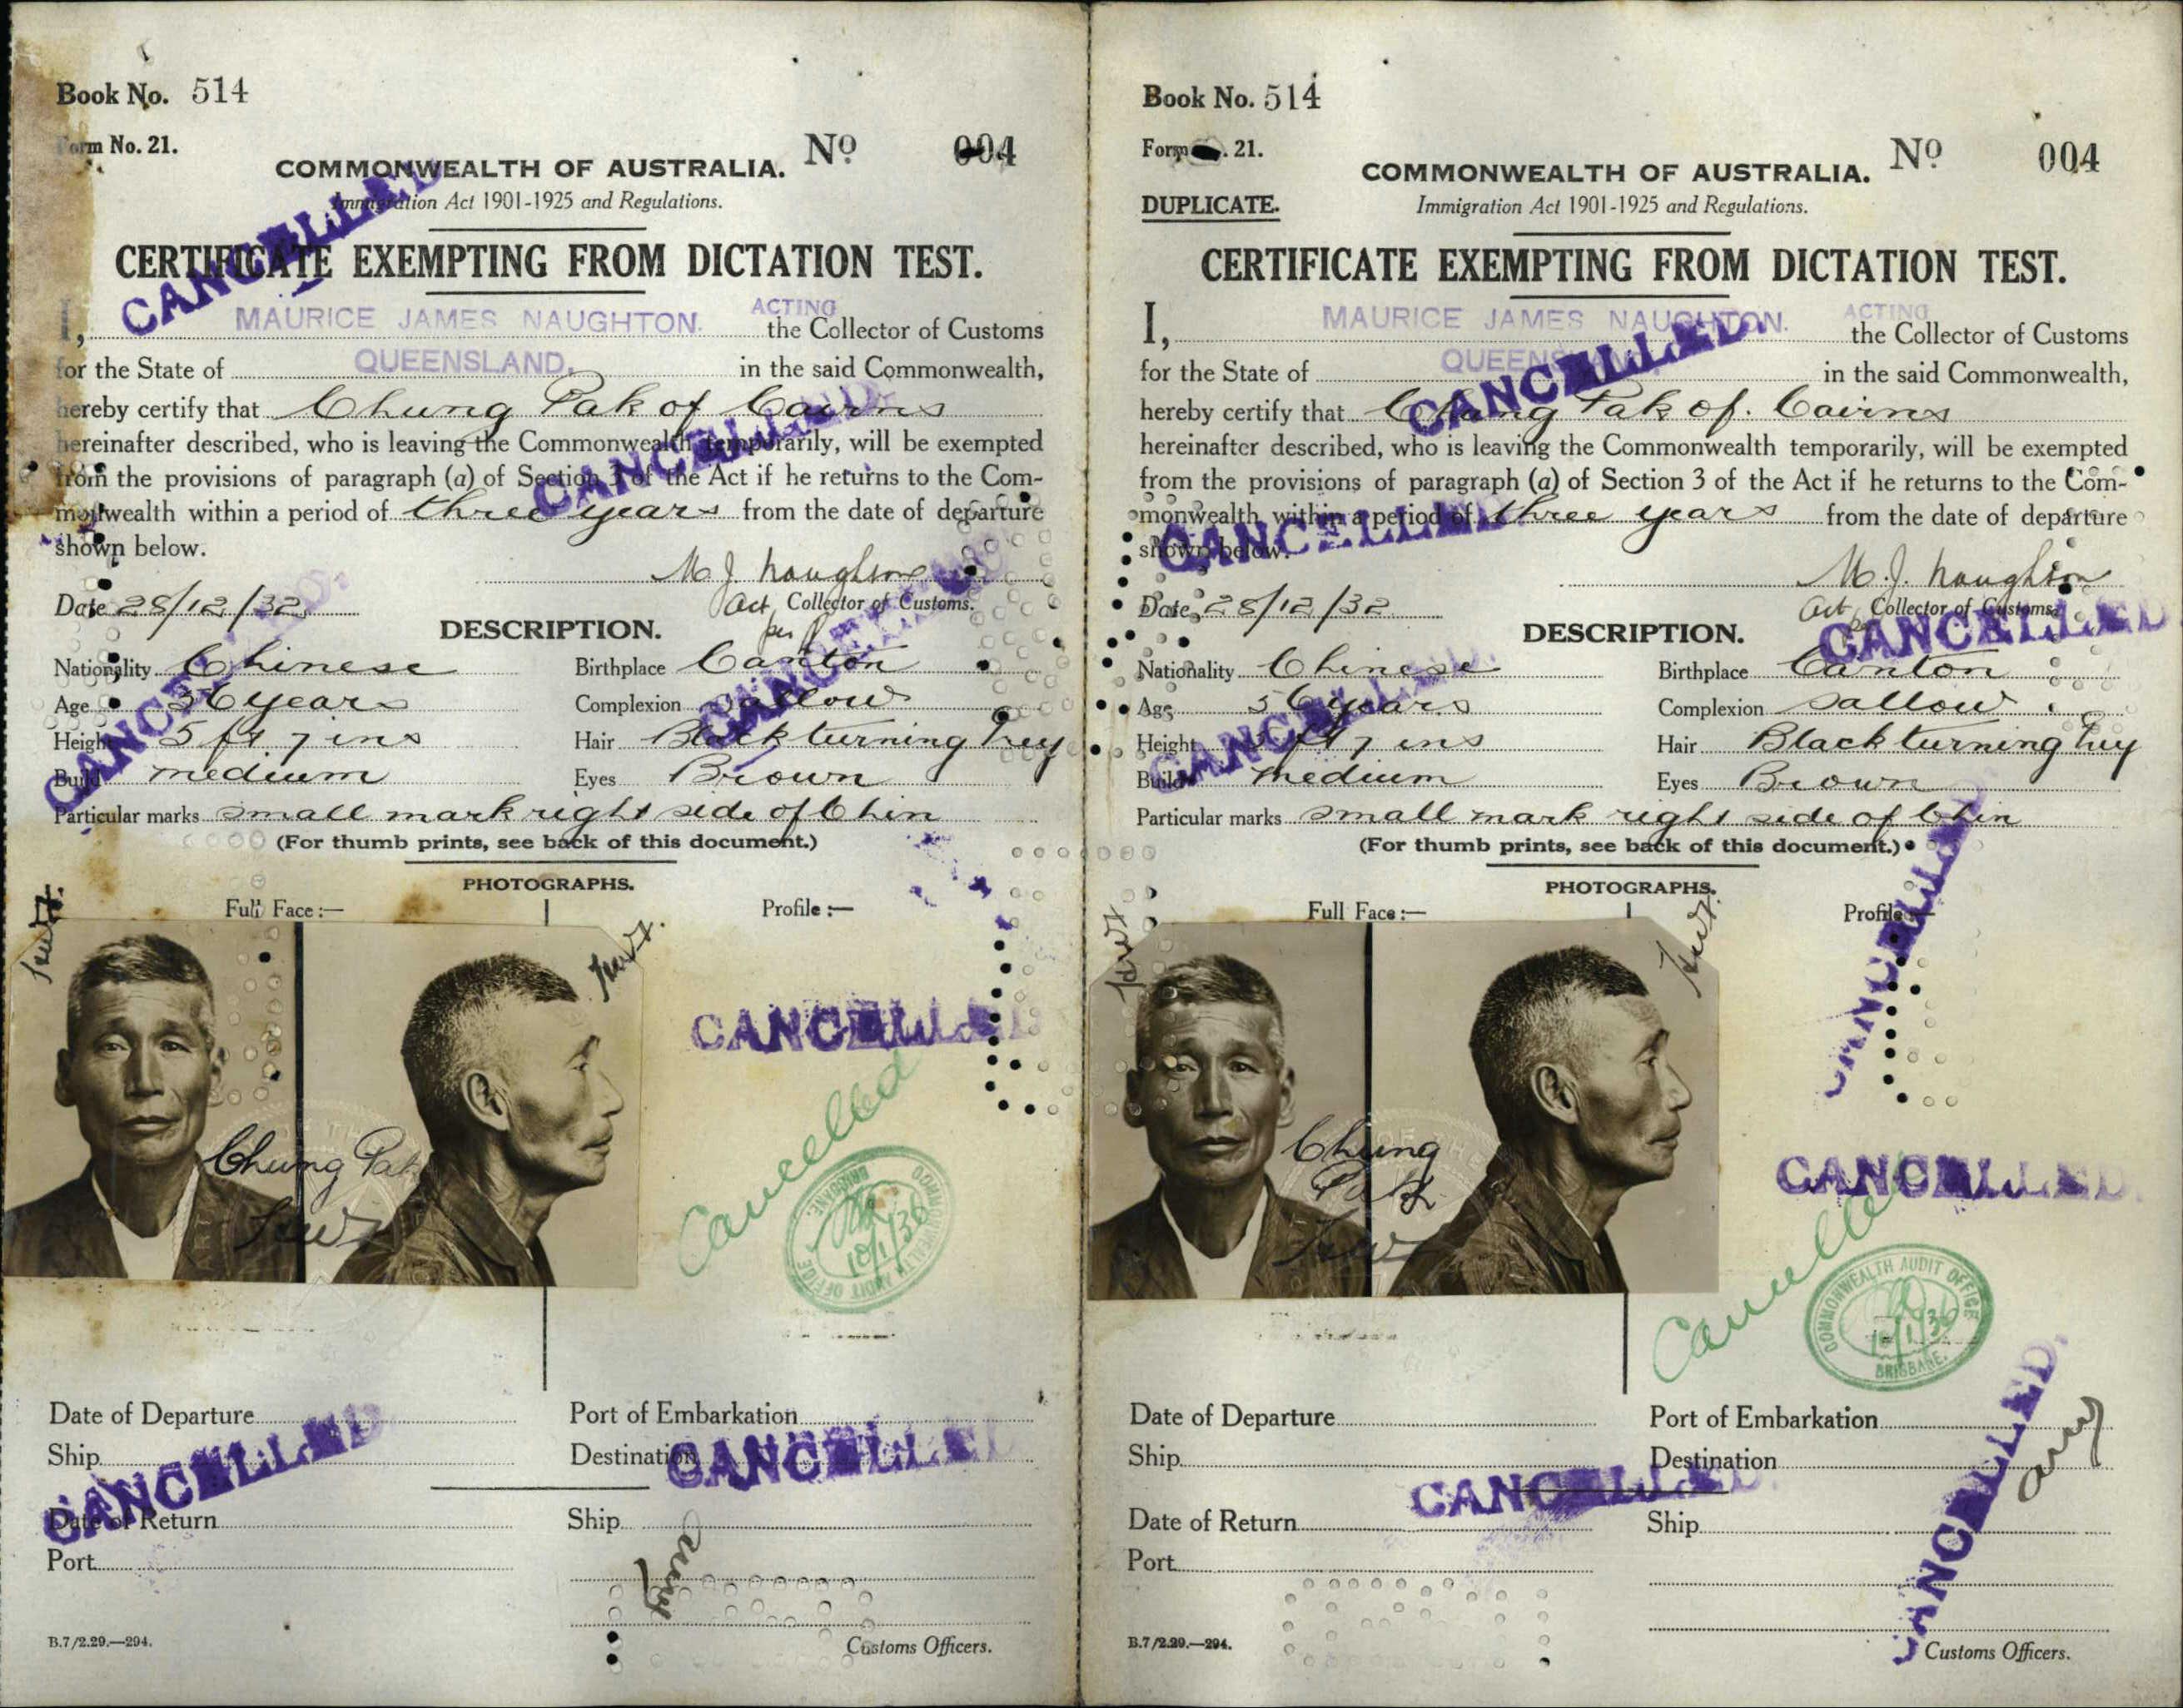 Book No. 514
Form No. 21.
No 004
COMMONWEALTH OF AUSTRALIA.
Immigration Act 1901-1925 and Regulations.
CERTIFICATE EXEMPTING FROM DICTATION TEST.
I, MAURICE JAMES NAUGHTON. ACTING the Collector of Customs
for the State of QUEENSLAND. in the said Commonwealth,
hereby certify that Chung Pak of Cairns
hereinafter described, who is leaving the Commonwealth temporarily, will be exempted
from the provisions of paragraph (a) of Section 3 of the Act if he returns to the Com-
monwealth within a period of three years from the date of departure
shown below.
M J Naughton
Act Collector of Customs.
per
Date 28/12/32
DESCRIPTION.
Nationality Chinese Birthplace Canton
Age 56 years Complexion Sallow
Height 5 ft 7 ins Hair Black turning Grey
Build medium Eyes Brown
Particular marks small mark right side of Chin
(For thumb prints, see back of this document.)
PHOTOGRAPHS.
Full Face :— Profile :—
Chung Pak
CANCELLED.
CANCELLED.
CANCELLED.
CANCELLED.
CANCELLED.
Cancelled
COMMONWEALTH AUDIT OFFICE
10/1/36
BRISBANE.
Date of Departure Port of Embarkation
Ship Destination
CANCELLED.
CANCELLED.
Date of Return Ship
Port
B.7/2.29.—294.
Customs Officers.
Book No. 514
Form . 21.
No 004
COMMONWEALTH OF AUSTRALIA.
DUPLICATE.
Immigration Act 1901-1925 and Regulations.
CERTIFICATE EXEMPTING FROM DICTATION TEST.
I, MAURICE JAMES NAUGHTON. ACTING the Collector of Customs
for the State of QUEENSLAND in the said Commonwealth,
hereby certify that Chung Pak of. Cairns
hereinafter described, who is leaving the Commonwealth temporarily, will be exempted
from the provisions of paragraph (a) of Section 3 of the Act if he returns to the Com-
monwealth within a period of three years from the date of departure
shown below.
M. J. Naughton
Act Collector of Customs.
per
Date 28/12/32
DESCRIPTION.
Nationality Chinese Birthplace Canton
Age 56 years Complexion Sallow
Height 5 ft 7 ins Hair Black turning Grey
Build medium Eyes Brown
Particular marks small mark right side of Chin
(For thumb prints, see back of this document.)
PHOTOGRAPHS.
Full Face :— Profile :—
Chung
Pak
CANCELLED.
CANCELLED.
CANCELLED.
CANCELLED.
CANCELLED.
CANCELLED.
Cancelled
COMMONWEALTH AUDIT OFFICE
10/1/36
BRISBANE.
Date of Departure Port of Embarkation
Ship Destination
CANCELLED.
CANCELLED.
Date of Return Ship
Port
B.7/2.29.—294.
Customs Officers.